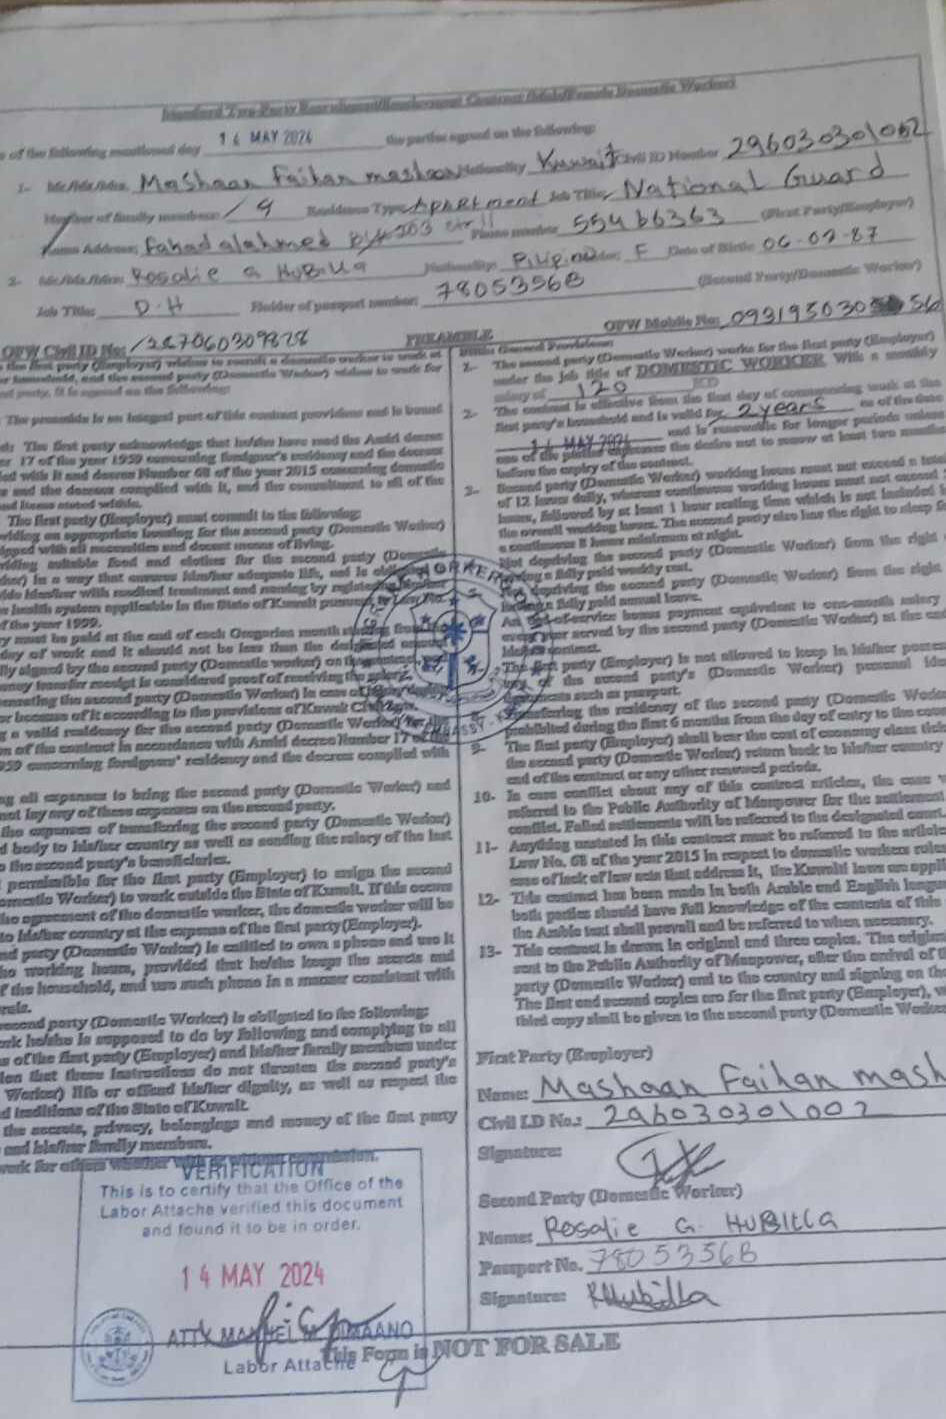 Standard Two-Party Recruitment/Employment Contract (Male/Female Domestic Worker)
of the following mentioned day 14 MAY 2024 the parties agreed on the following:
1- Mr/Ms/Mrs. Mashaan Faihan Nationality Kuwait Civil ID Number
Number of family members: 9 Residence Type: Apartment Job Title: National Guard
Home Address: Fahad alahmed Phone number: 55466363 (First Party/Employer)
2- Mr/Ms/Mrs: Rosalie G HuBilla Nationality: F Date of Birth: 06-02-87
Job Title: D.H Holder of passport number: 7805356B (Second Party/Domestic Worker)
OFW Civil ID No: OFW Mobile No:
PREAMBLE
the first party (Employer) wishes to
household, and the second party (Domestic Worker) wishes to work for
party, it is agreed on the following:
The preamble is an integral part of this contract provisions and is bound
The first party acknowledge that he/she have read the Amiri decree
17 of the year 1959 concerning foreigner's residency and the decrees
complied with it and decree Number 68 of the year 2015 concerning domestic
and the decrees complied with it, and the commitment to all of the
items stated within.
The first party (Employer) must commit to the following:
Providing an appropriate housing for the second party (Domestic Worker)
equipped with all necessities and decent means of living.
Providing suitable food and clothes for the second party (Domestic
in a way that ensures him/her adequate life, and is
him/her with medical treatment and nursing by
health system applicable in the State of Kuwait
of the year 1999.
must be paid at the end of each Gregorian month
day of work and it should not be less than the designated
signed by the second party (Domestic worker) on
transfer receipt is considered proof of receiving the salary.
the second party (Domestic Worker) in case of
because of it according to the provisions of Kuwait
a valid residency for the second party (Domestic Worker) for the
of the contract in accordance with Amiri decree Number 17
1959 concerning foreigners' residency and the decrees complied with
all expenses to bring the second party (Domestic Worker) and
not lay any of these expenses on the second party.
the expenses of transferring the second party (Domestic Worker)
body to his/her country as well as sending the salary of the last
to the second party's beneficiaries.
permissible for the first party (Employer) to assign the second
(Domestic Worker) to work outside the State of Kuwait. If this occurs
the agreement of the domestic worker, the domestic worker will be
to his/her country at the expense of the first party (Employer).
party (Domestic Worker) is entitled to own a phone and use it
working hours, provided that he/she keeps the secrets and
of the household, and use such phone in a manner consistent with
second party (Domestic Worker) is obligated to the following:
work he/she is supposed to do by following and complying to all
of the first party (Employer) and his/her family members under
that these instructions do not threaten the second party's
Worker) life or offend his/her dignity, as well as respect the
traditions of the State of Kuwait.
the secrets, privacy, belongings and money of the first party
and his/her family members.
work for others whether with or without commission.
General Provisions:
1- The second party (Domestic Worker) works for the first party (Employer)
under the job title of DOMESTIC WORKER With a monthly
salary of 120 KD
2- The contract is effective from the first day of commencing work at the
first party's household and is valid for 2 years as of the date
14 MAY 2024 and is renewable for longer periods unless
one of the parties expresses the desire not to renew at least two months
before the expiry of the contract.
3- Second party (Domestic Worker) working hours must not exceed a total
of 12 hours daily, whereas continuous working hours must not exceed
hours, followed by at least 1 hour resting time which is not included
the overall working hours. The second party also has the right to sleep for
a continuous 8 hours minimum at night.
Not depriving the second party (Domestic Worker) from the right
a fully paid weekly rest.
depriving the second party (Domestic Worker) from the right
a fully paid annual leave.
An end-of-service bonus payment equivalent to one-month salary
every year served by the second party (Domestic Worker) at the end
contract.
The first party (Employer) is not allowed to keep in his/her
of the second party's (Domestic Worker) personal
documents such as passport.
Transferring the residency of the second party (Domestic
prohibited during the first 6 months from the day of entry to the
9- The first party (Employer) shall bear the cost of economy class
the second party (Domestic Worker) return back to his/her country
end of the contract or any other renewed periods.
10- In case conflict about any of this contract articles, the case
referred to the Public Authority of Manpower for the settlement
conflict. Failed settlements will be referred to the designated court.
11- Anything unstated in this contract must be referred to the
Law No. 68 of the year 2015 in respect to domestic workers
case of lack of law sets that address it, the Kuwaiti laws are
12- This contract has been made in both Arabic and English
both parties should have full knowledge of the contents of this
the Arabic text shall prevail and be referred to when necessary.
13- This contract is drawn in original and three copies. The
sent to the Public Authority of Manpower, after the arrival of
party (Domestic Worker) and to the country and signing on
The first and second copies are for the first party (Employer),
third copy shall be given to the second party (Domestic
First Party (Employer)
Name: Mashaan Faihan mash
Civil I.D No.: 296030301002
Signature:
Second Party (Domestic Worker)
Name: Rosalie G. HUBILLA
Passport No. 7805356B
Signature: RHubilla
VERIFICATION
This is to certify that the Office of the
Labor Attache verified this document
and found it to be in order.
14 MAY 2024
Labor Attache
This Form is NOT FOR SALE